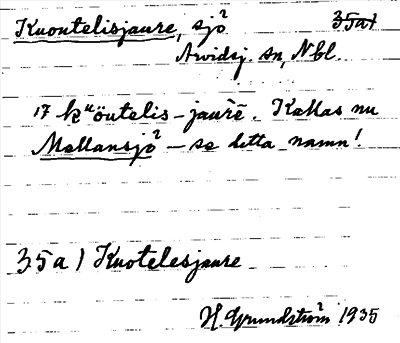 Kuoutelisjaure, sjö 35a)
Arvidsj. sn, Nbl.
17 kᵘöutelis-jaurē. Kallas nu
Mellansjö – se detta namn!
35a) Kuotelesjaure
H. Grundström 1935